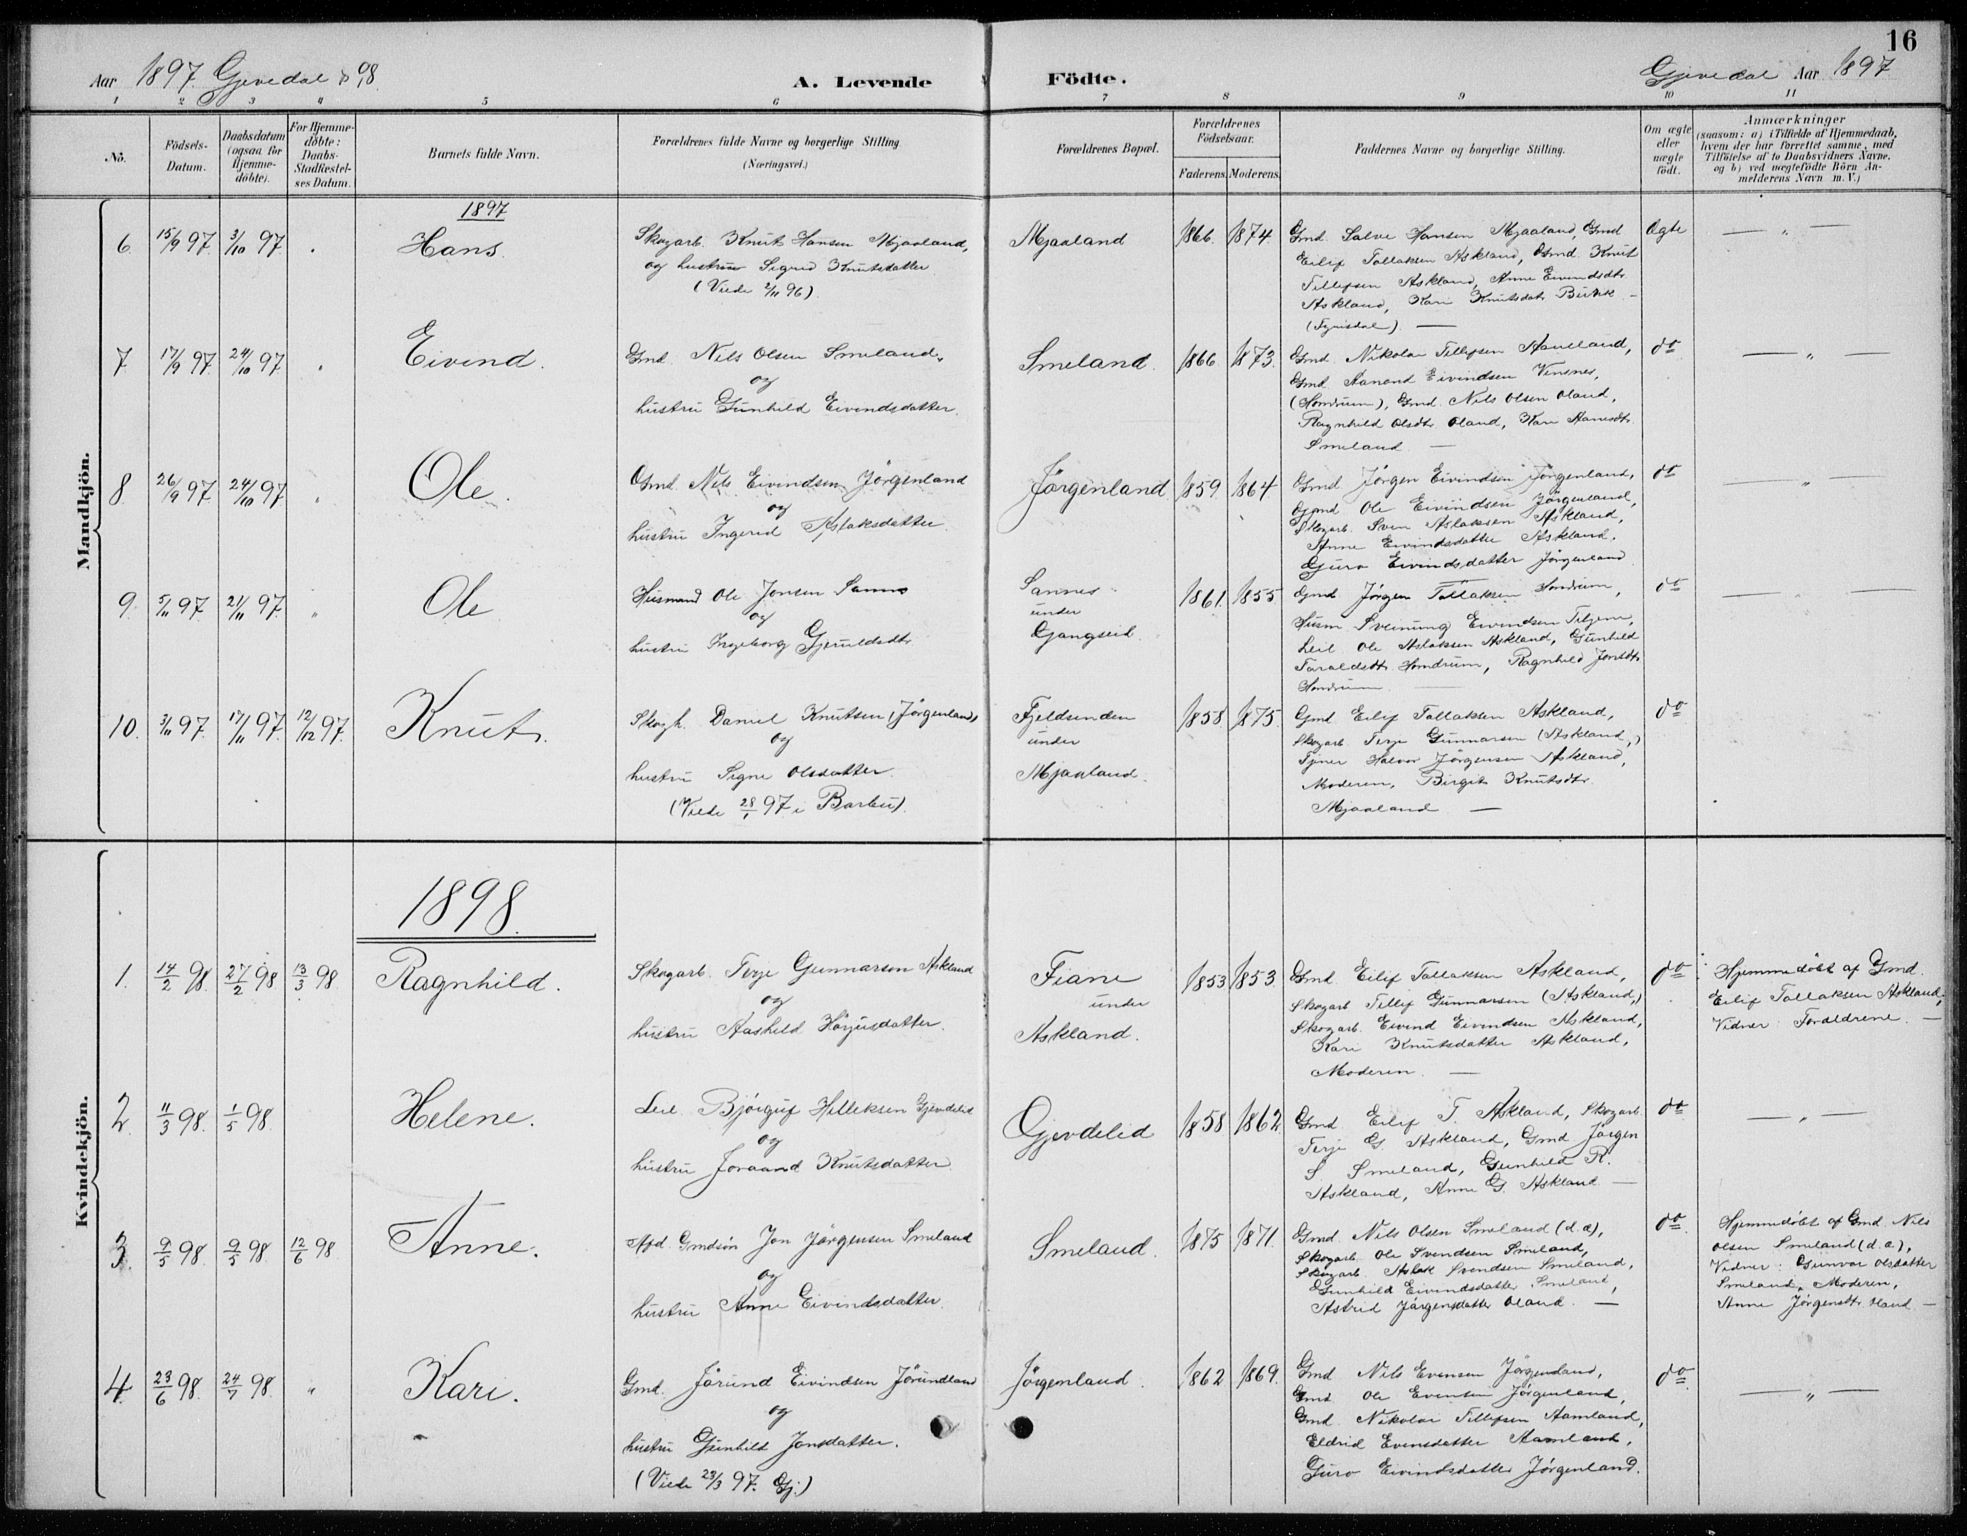 16
Aar 1897 Gjevedal & 98. A. Levende Födte. Gjevedal Aar 1897
1 2 3 4 5 6 7 8 9 10 11
No. Födsels-Datum. Daabsdatum (ogsaa for Hjemme-döbte). For Hjemme-döbte: Daabs-Stadfæstel-ses Datum. Barnets fulde Navn. Forældrenes fulde Navne og borgerlige Stilling (Næringsvei.) Forældrenes Bopæl. Forældrenes Födselsaar. Faderens. Moderens. Faddernes Navne og borgerlige Stilling. Om ægte eller uægte födt. Anmærkninger (saasom: a) i Tilfælde af Hjemmedaab, hvem der har forrettet samme, med Tilföielse af to Daabsvidners Navne, og b) ved uægtefödte Börn An-melderens Navn m. V.)
Mandkjön.
1897
6 15/9 97 3/10 97. Hans
Skogarb. Knut Hansen Mjaaland,
og hustru Sigrid Knutsdatter
(Viede 2/11 96).
Mjaaland 1866. 1874.
Gmd. Salve Hansen Mjaaland, Gmd
Eilif Tallaksen Askland, Gmd Knut
Tillefsen Askland, Anne Eivindsdtr
Askland, Kari Knutsdatr Birkk –
(Fyrisdal). —
Ægte — „ —
7 17/9 97. 24/10 97. Eivind.
Gmd. Nils Olsen Smeland,
og
hustru Gunhild Eivindsdatter.
Smeland. 1866. 1873.
Gmd. Nikolai Tillefsen Aameland,
Gmd. Aanond Eivindsen Vensnes,
(Homdrum), Gmd. Nils Olsen Oland,
Ragnhild Olsdtr Oland, Kari Aanesdtr
Smeland —
do — „ —
8 26/9 97 24/10 97 Ole.
Gmd. Nils Eivindsen Jörgenland
og
hustru Ingerid Aslaksdatter.
Jörgenland 1859. 1864
Gmd Jörgen Eivindsen Jörgenland,
Gmd Ole Eivindsen Jörgenland,
Skogarb. Sven Aslaksen Askland,
Anne Eivindsdatter Askland.
Guro Eivindsdatter Jörgenland
do — „ —
9. 5/11 97 21/11 97. „ Ole
Husmand Ole Jonsen Sannes
og
hustru Ingeborg Gjeruldsdtr.
Sannes
under
Gangseid. 1861. 1855
Gmd Jörgen Tallaksen Homdrum,
Husm Sveinung Eivindsen Tiljem,
Leil Ole Aslaksen Askland, Gunhild
Taraldsdtr Homdrum, Ragnhild Jonsdtr
Homdrum. —
do
10. 3/11 97. 17/11 97. 12/12 97. Knut.
Skogh. Daniel Knutsen (Jörgenland)
og
hustru Signe Olsdatter.
(Viede 28/1 97 i Barbu).
Fjeldsunden
under
Mjaaland. 1858 1875.
Gmd Eilif Tallaksen Askland,
Skogarb. Terje Gunnarsen (Askland,)
Tjener Halvor Jörgensen Askland,
Moderen, Birgit Knutsdtr.
Mjaaland —
do
Kvindekjön.
1898.
1. 14/2 98. 27/2 98 13/3 98. Ragnhild.
Skogarb. Terje Gunnarsen Askland
og
hustru Aashild Hörjusdatter.
Fiane
under
Askland. 1853 1853.
Gmd. Eilif Tallaksen Askland,
Skogarb Tillef Gunnarsen (Askland,)
Skogarb. Eivind Eivindsen Askland,
Kari Knutsdatter Askland,
Moderen. —
do
Hjemmedöbt af Gmd.
Eilif Tallaksen Askland,
Vidner: Forældrene. —
2. 11/3 98. 1/5 98. Helene.
Leil. Björguf Helleksen Gjevdelid
og
hustru Joraand Knutsdatter.
Gjevdelid 1858 1862
Gmd. Eilif T. Askland, Skogarb.
Terje G. Askland, Gmd Jörgen
S. Smeland, Gunhild R.
Askland, Anne G. Askland —
do — „ —
3. 9/5 98. 9/5 98 12/6 98. Anne.
Gmdsön Jon Jörgensen Smeland
og
hustru Anne Eivindsdatter.
Smeland. 1875 1871.
Gmd. Nils Olsen Smeland (d.æ),
Skogarb. Ole Svendsen Smeland,
Skogarb. Aslak Svendsen Smeland,
Gunhild Eivindsdatter Smeland,
Astrid Jörgensdatter Oland. —
do
Hjemmedöbt af Gmd. Nils
Olsen Smeland (d.æ),
Vidner: Gunvor Olsdatter
Smeland, Moderen,
Anne Jörgensdtr. Oland. —
4. 23/6 98. 24/7 98. „ Kari.
Gmd. Jörund Eivindsen Jörundland
og
hustru Gunhild Jonsdatter.
(Viede 23/3 97. Gj.)
Jörgenland. 1862 1869.
Gmd Nils Evensen Jörgenland,
Gmd Ole Evensen Jörgenland,
Gmd. Nikolai Tillefsen Aamland,
Eldrid Evensdatter Aamland,
Guro Eivindsdatter Jörgenland.
do — „ —